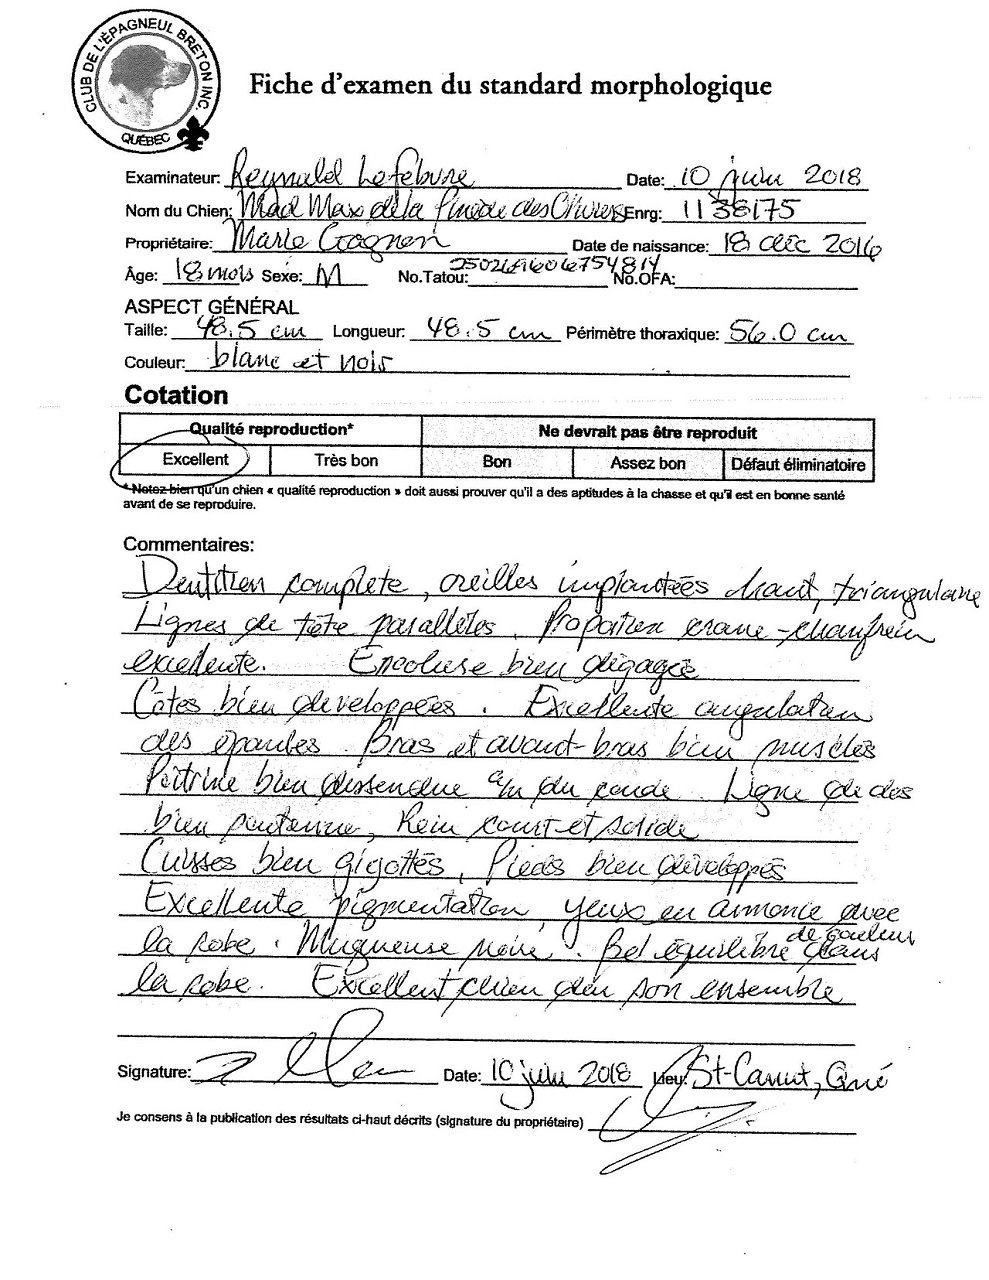 CLUB DE L'ÉPAGNEUL BRETON INC.
QUÉBEC
Fiche d'examen du standard morphologique
Examinateur: Reynald Lefebvre Date: 10 juin 2018
Nom du Chien: Mad Max de la Pinède des Oliviers Enrg: 1138175
Propriétaire: Marie Gagnon Date de naissance: 18 déc 2016
Âge: 18 mois Sexe: M No.Tatou: No.OFA:
ASPECT GÉNÉRAL
Taille: 48.5 cm Longueur: 48.5 cm Périmètre thoraxique: 56.0 cm
Couleur: blanc et noir
Cotation
Qualité reproduction* Ne devrait pas être reproduit
Excellent Très bon Bon Assez bon Défaut éliminatoire
* Notez bien qu'un chien « qualité reproduction » doit aussi prouver qu'il a des aptitudes à la chasse et qu'il est en bonne santé
avant de se reproduire.
Commentaires:
Dentition complète, oreilles implantées haut, triangulaire
Lignes de tête parallèles. Proportion crane-chanfrein
excellente. Encolure bien dégagée
Côtes bien développées. Excellente angulation
des épaules Bras et avant-bras bien musclés
Poitrine bien dessendue a/n du coude. Ligne de dos
bien soutenue, Rein court et solide
Cuisses bien gigottés, Pieds bien développés
Excellente pigmentation, yeux en armonie avec
la robe. Muqueuse noire. Bel équilibre de couleur dans
la robe. Excellent chien dan son ensemble
Signature: Date: 10 juin 2018 Lieu: St-Canut, Qué
Je consens à la publication des résultats ci-haut décrits (signature du propriétaire)